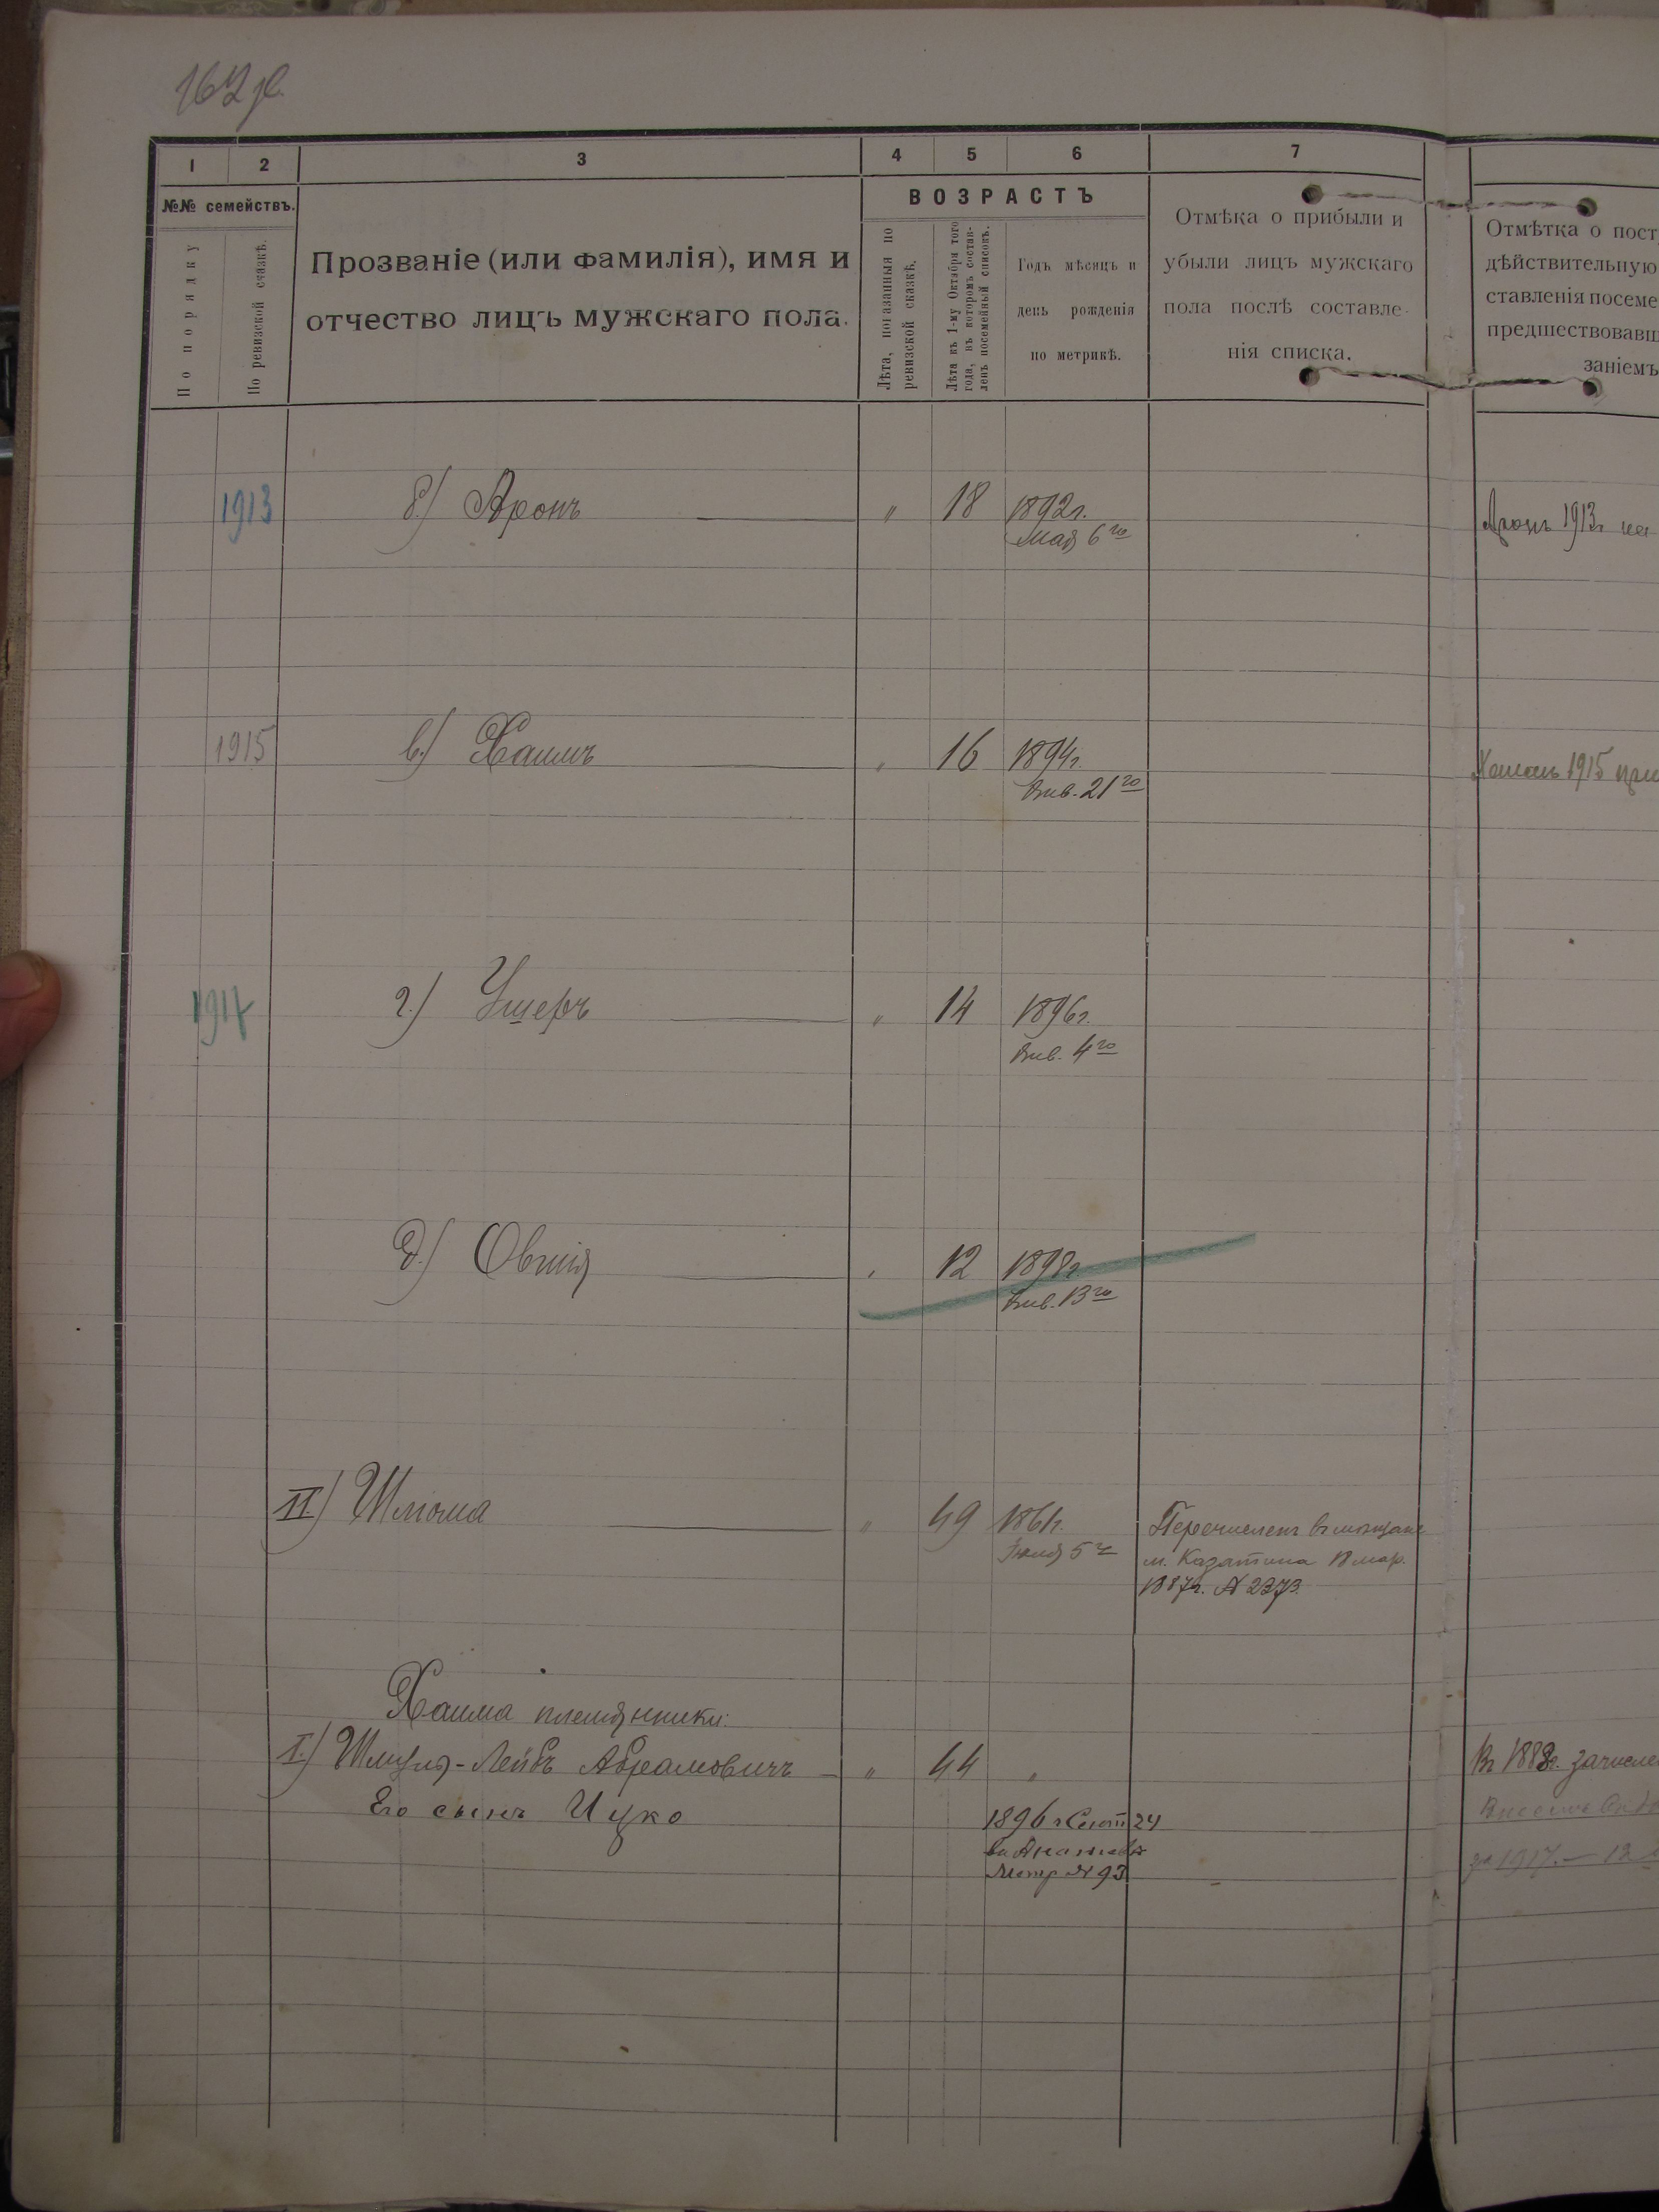 1 2 3 4 5 6 7
№№ семействъ.
По порядку
По ревизской сказкѣ.
Прозваніе (или фамилія), имя и
отчество лицъ мужскаго пола.
ВОЗРАСТЪ
Лѣта, показанныя по
ревизской сказкѣ.
Лѣта къ 1-му Октября того
года, въ которомъ состав-
ленъ посемейный списокъ.
Годъ мѣсяцъ и
день рожденія
по метрикѣ.
Отмѣка о прибыли и
убыли лицъ мужскаго
пола послѣ составле-
нія списка.
Отмѣтка о пост
дѣйствительную
ставленія посеме
предшествовавш
заніемъ
1913 б.) Аронъ " 18 1892г.
Мая 6го
Аронъ 1913г на
1915 в.) Хаимъ " 16 1894г.
Янв. 21го
Хаимъ 1915 при
1917 г.) Ушеръ " 14 1896г.
Янв. 4го
д.) Овшія " 12 1898г
Янв. 13го
II) Шліома " 49 1861г.
Іюля 5го
Перечисленъ въ мѣщане
м. Казатина 18 мар.
1887г. № 2373.
Хаима племянники:
I.) Шмуля-Лейбъ Абрамовичъ " 44 "
Его сынъ Ицко
1896 г Сент 24
въ Ананьевѣ
Метр № 93
Въ 1888г. зачисле
за 1917. — 12